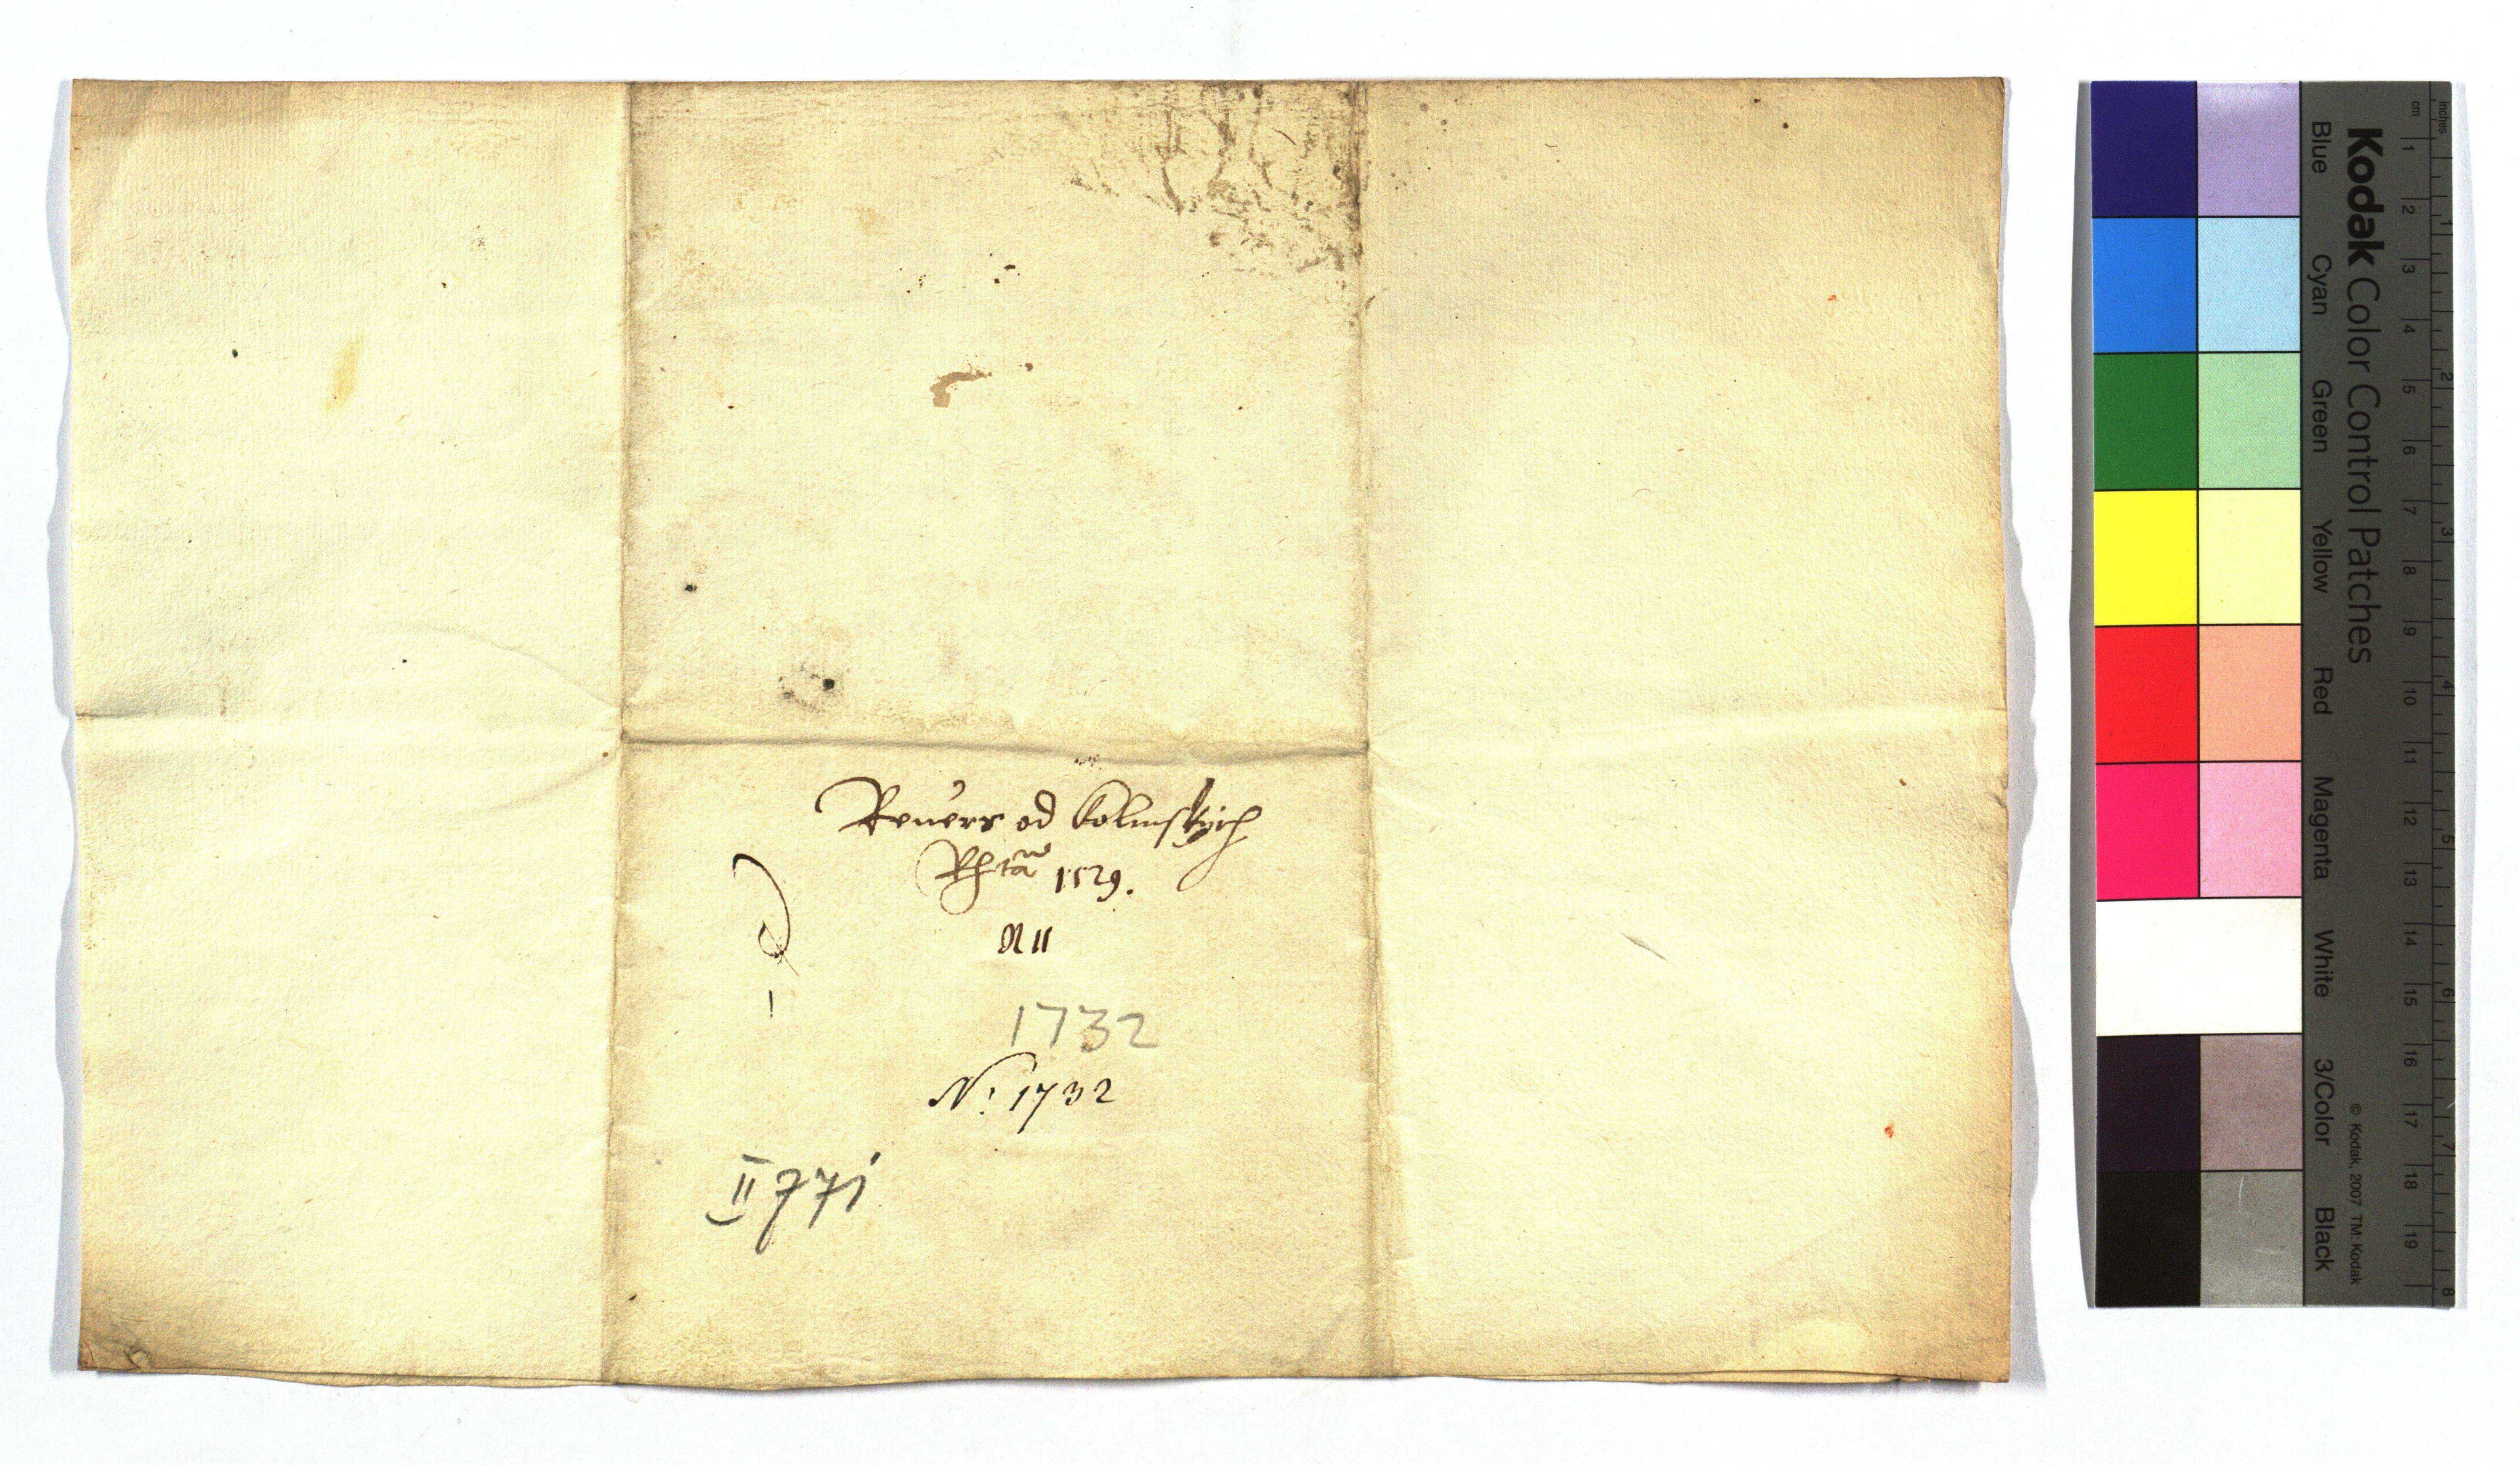 Reuers od Kolinskych
1529.
N 11
1732
N: 1732
II 771
Kodak Color Control Patches
Blue Cyan Green Yellow Red Magenta White 3/Color Black
© Kodak, 2007 TM: Kodak
cm 1 2 3 4 5 6 7 8 9 10 11 12 13 14 15 16 17 18 19
inches 1 2 3 4 5 6 7 8